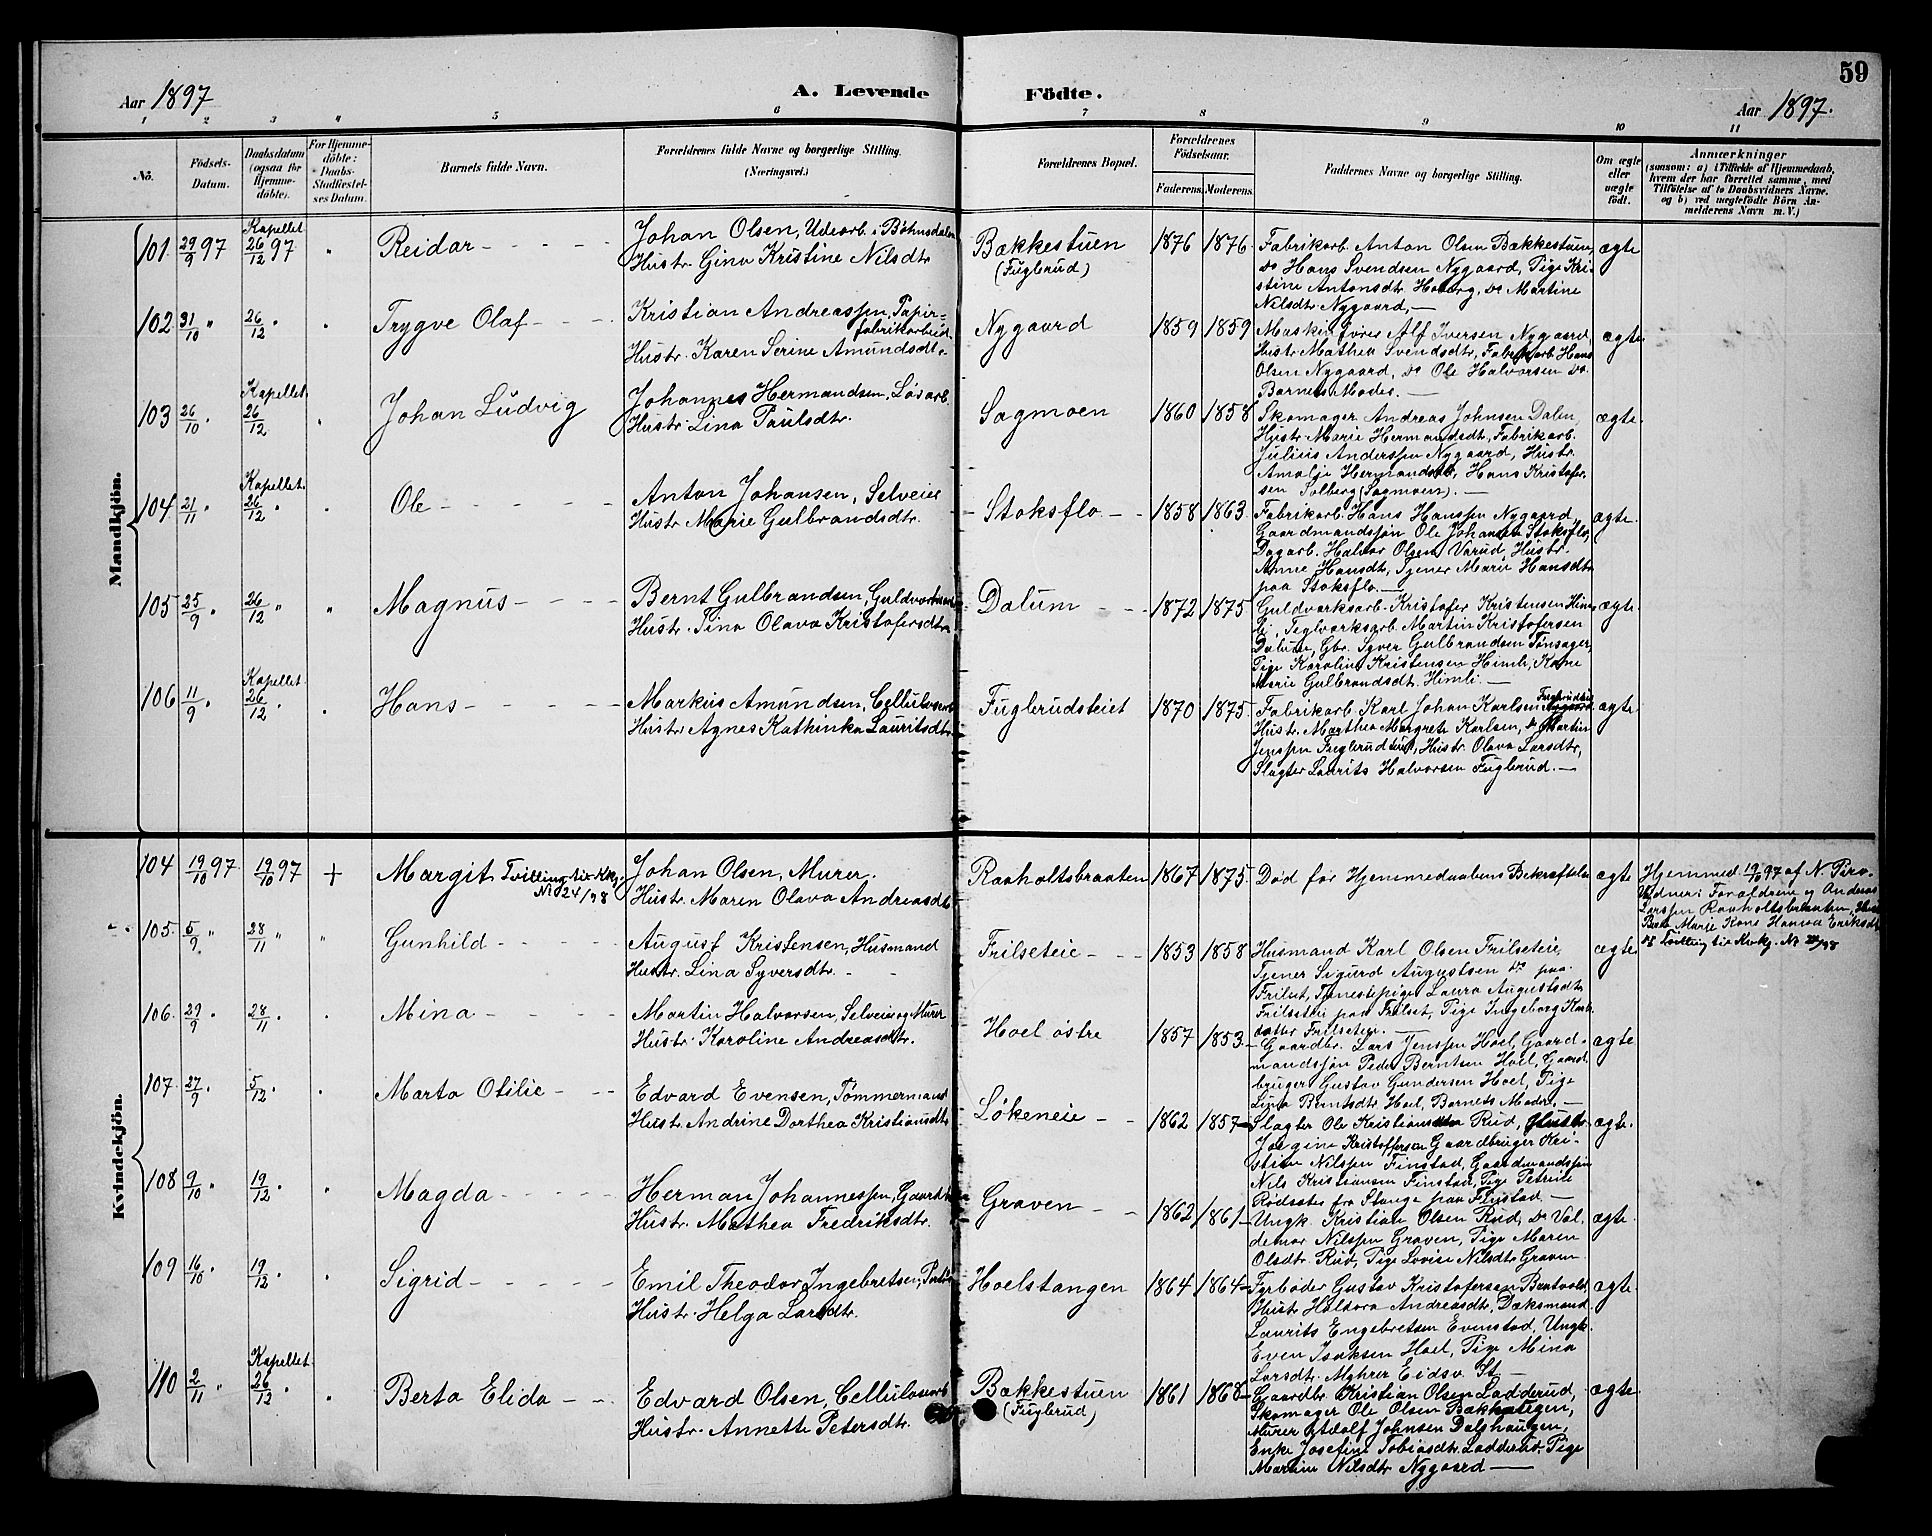 59
Aar 1897
A. Levende
Födte.
Aar 1897.
1 2 3 4 5 6 7 8 9 10 11
No.
Födsels-Datum.
Daabsdatum (ogsaa for Hjemme-döbte).
For Hjemme-döbte: Daabs-Stadfæstel-ses Datum.
Barnets fulde Navn.
Forældrenes fulde Navne og borgerlige Stilling. (Næringsvei.)
Forældrenes Bopæl.
Forældrenes Födselsaar.
Faderens. Moderens.
Faddernes Navne og borgerlige Stilling.
Om ægte eller uægte födt.
Anmærkninger
(saasom: a) i Tilfælde af Hjemmedaab,
hvem der har forrettet samme, med
Tilföielse af to Daabsvidners Navne,
og b) ved uægtefödte Börn An-
melderens Navn m. V.)
Mandkjön.
101. 29/9 97 Kapellet 26/12 97 " Reidar
Johan Olsen, Udearb. i Bøhnsdalen
Hustr. Gina Kristine Nilsdtr.
Bakkestuen (Fuglerud) 1876 1876
Fabrikarb. Anton Olsen Bakkestuen,
Do Hans Svendsen Nygaard, Pige Kri-
stine Antonsdtr. Hoberg, Do Martine
Nilsdtr. Nygaard.—
ægte
102. 31/10 " 26/12 " Trygve Olaf
Kristian Andreassen, Papir-
fabrikarbeid.
Hustr. Karen Serine Amundsdtr.
Nygaard 1859 1859
Maskinfører Alf Iversen Nygaard,
Hustr. Mathea Svendsdtr., Fabrikarb. Hans
Olsen Nygaard, Do Ole Halvorsen Do
Barnets Moder.—
ægte
103. 26/10 Kapellet 26/12 " Johan Ludvig
Johannes Hermandsen, Løsarb.
Hustr. Lina Paulsdtr.
Sagmoen 1860 1858
Skomager Andreas Johnsen Dalen,
Hustr. Marie Hermandsdt., Fabrikarb.
Julius Anderssen Nygaard, Hustr.
Amalje Hermandsdtr., Hans Kristofer-
sen Solberg (Sagmoen).—
ægte.
104. 21/11 Kapellet. 26/12 " Ole
Anton Johansen, Selveier
Hustr. Marie Gulbrandsdtr.
Stoksflo 1858 1863
Fabrikarb. Hans Hanssen Nygaard,
Gaardmandssøn Ole Johansen Stoksflo,
Dagarb. Halvor Olsen Varud, Hustr.
Anne Hansdt., Tjener Marie Hansdtr.
paa Stoksflo.—
ægte.
105 25/9 " 26/12 " Magnus
Bernt Gulbrandsen, Guldværksarb.
Hustr. Tina Olava Kristofersdtr.
Dalum 1872 1875
Guldverksarb. Kristofer Kristensen Him-
li, Teglverksarb. Martin Kristofersen
Dalum, Gbr. Syver Gulbrandsen Tønsager,
Pige Karoline Kristensen Himli, Kone
Marie Gulbrandsdt. Himli.—
ægte.
106 11/9 Kapellet 26/12 " Hans
Markus Amundsen, Cellulosearb.
Hustr. Agnes Kathinka Lauritsdtr.
Fuglerudseiet 1870 1875
Fabrikarb. Karl Johan Karlsen Fuglerudeie
Hustr. Marthea Margrete Karlsen, Do Martin
Jenssen Fuglerudeiet, Hustr. Olava Larsdtr,
Slagter Laurits Halvorsen Fuglerud.—
ægte.
Kvindekjön.
104 19/10 97 19/10 97 + Margit Tvilling til Kvkj. No 24/98
Johan Olsen, Murer.
Hustr. Maren Olava Andreasdt.
Raaholtsbraaten 1867 1875
Død før Hjemmedaabens Bekræftelse
ægte
Hjemmed. 19/10 97 af N. Piro.
Vidner: Forældrene og Andreas
Larssen Raaholtsbraaten,
Berte Marie Kone Hanna Eriksdt.
Tvilling til Kvkj. No 24/98
105. 5/9 " 28/11 " Gunhild
August Kristensen, Husmand
Hustr. Lina Syversdtr.
Frilseteie 1853 1858
Husmand Karl Olsen Frilseteie,
Tjener Sigurd Augustsen Do paa
Frilset, Tjenestepige Laura Augustsdt.
Frilseteie paa Frilset, Pige Ingeborg
datter Frilseteie.—
ægte
106. 29/9 28/11 Mina
Martin Halvorsen, Selveier og Murer
Hustr. Karoline Andreasdtr.
Hoel østre 1857 1853
Gaardbr. Lars Jenssen Hoel, Gaard-
mandssøn Peder Berntsen Hoel, Gaard-
bruger Gustav Gundersen Hoel, Pige
Lina Berntsdt. Hoel, Barnets Moder.—
ægte
107. 27/9 5/12 Marta Otilie
Edvard Evensen, Tømmermand
Hustr. Andrine Dorthea Kristiansdt.
Løkeneie 1862 1857
Slagter Ole Kristiansen Rud, Hustr.
Jørgine Kristoffersen Gaardbruger Kri-
stian Nilssen Finstad, Gaardmandssøn
Nils Kristiansen Finstad, Pige Petrine
Rødsæter fra Stange paa Finstad.—
ægte.
108 9/10 19/12 Magda
Herman Johannessen, Gaardb.
Hustr. Mathea Fredriksdtr.
Graven 1862 1861
Ungk. Kristian Olsen Rud, Do Val-
demar Nilssen Graven, Pige Maren
Olsdtr. Rud, Pige Lovise Nilsdtr Graven
ægte.
109 16/10 19/12 Sigrid
Emil Theodor Ingebretsen,
Hustr. Helga Larsdtr.
Hoelstangen 1864 1864
Fyrbøder Gustav Kristofersen
Hustr. Haldora Andreasdtr., Dæksmand
Laurits Engebretsen Evenstad, Ungk.
Even Isaksen Hoel, Pige Mina
Larsdtr. Myhrer Eidsv. St.—
ægte.
110 2/11 Kapellet 26/12 Berta Elida
Edvard Olsen, Cellulosearb.
Hustr. Annette Petersdtr.
Bakkestuen (Fuglerud) 1861 1868
Gaardbr. Kristian Olsen Ladderud,
Skomager Ole Olsen Bakkestuen,
Murer Adolf Johnsen Dalshaugen,
Enke Josefine Tobiasdtr. Ladderud, Pige
Martine Nilsdtr Nygaard—
ægte.